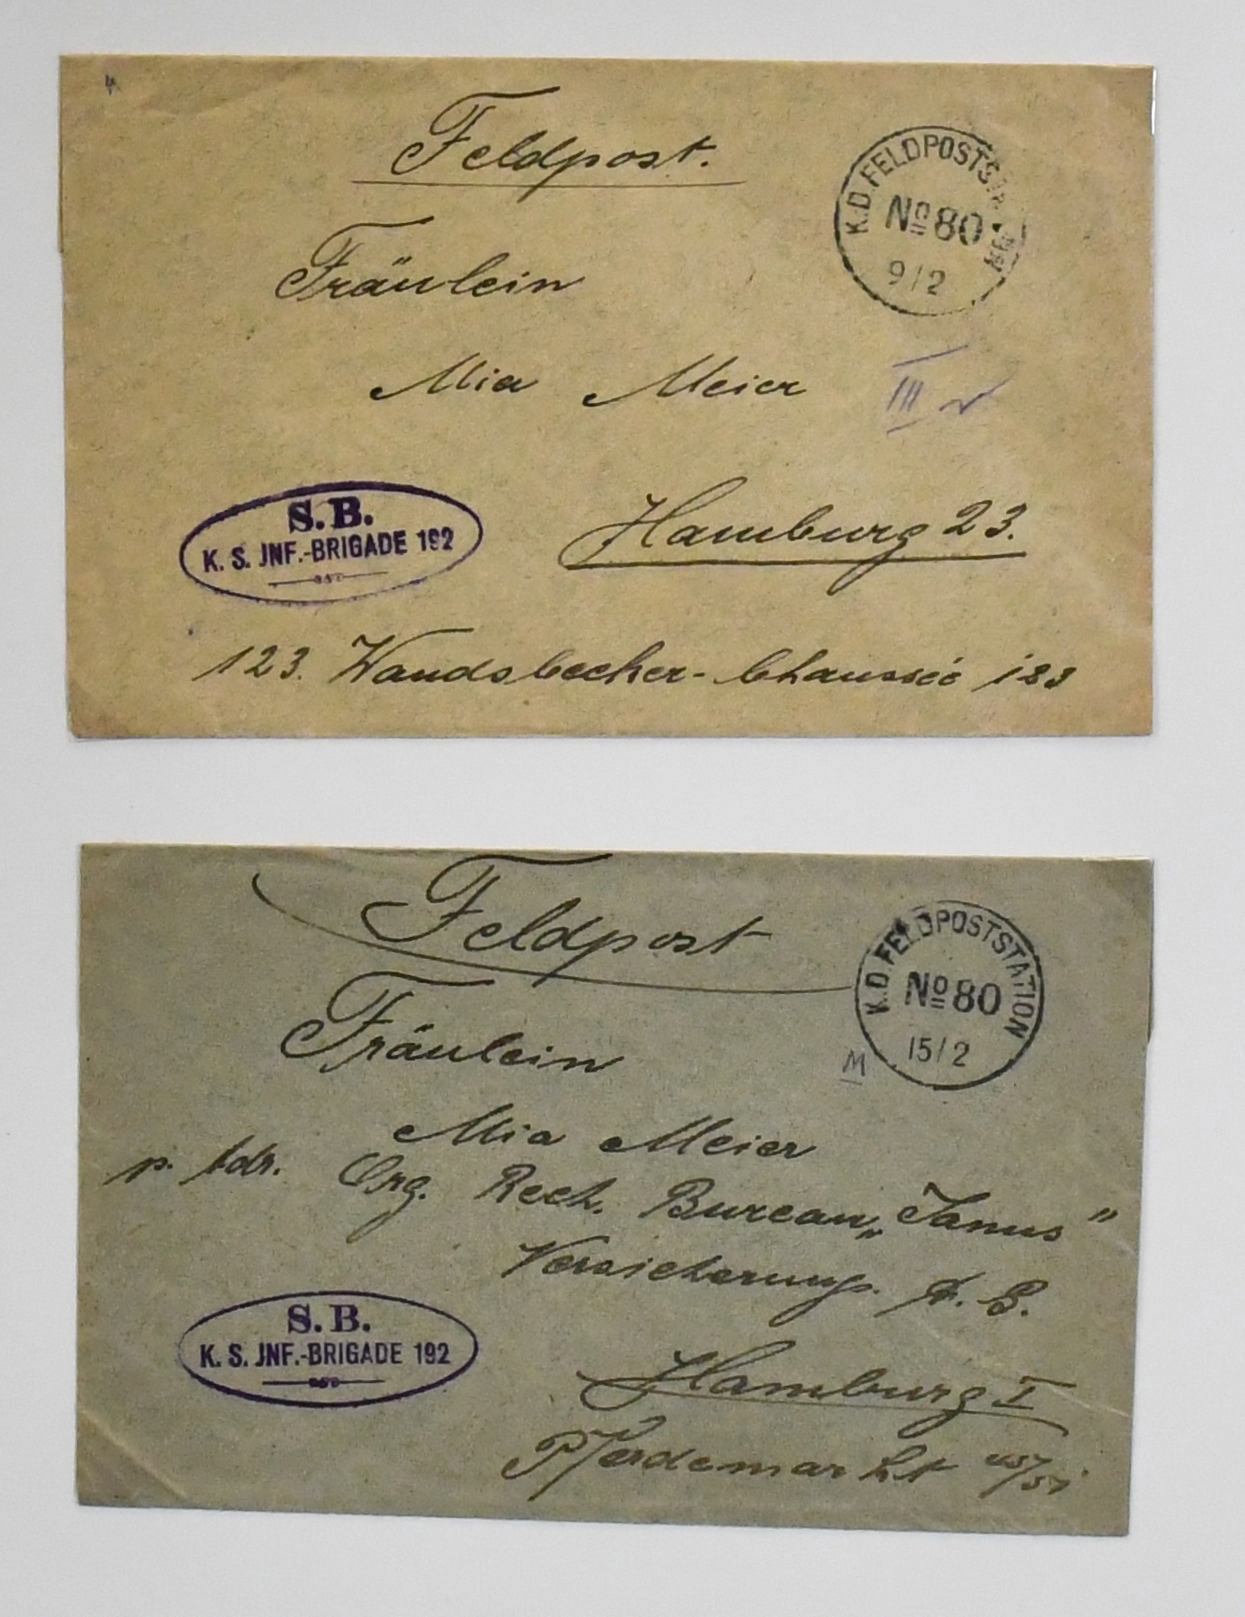 Feldpost.
K.D. FELDPOSTSTATION
No 80
9/2
Fräulein
Mia Meier
III
S. B.
K. S. JNF.-BRIGADE 192
Hamburg 23.
123. Wandsbecker-Chaussée 123
Feldpost
K.D. FELDPOSTSTATION
No 80
15/2
Fräulein
M
Mia Meier
p. Adr. Org. Rech. Bureau „Janus"
Versicherungs. A. G.
S. B.
K. S. JNF.-BRIGADE 192
Hamburg I
Pferdemarkt